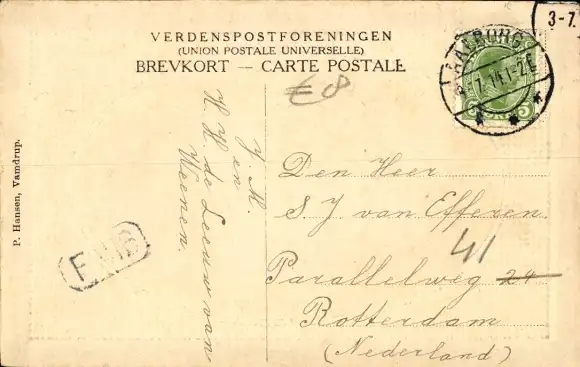 VERDENSPOSTFORENINGEN
(UNION POSTALE UNIVERSELLE)
BREVKORT — CARTE POSTALE
3-7.
AALBORG
7.14.1-2E
5
€8
J. M.
en
H. H. de Leeuw van
Weenen.
Den Heer
S. J van Efferen
41
Parallelweg 24
Rotterdam
(Nederland)
P. Hansen, Vamdrup.